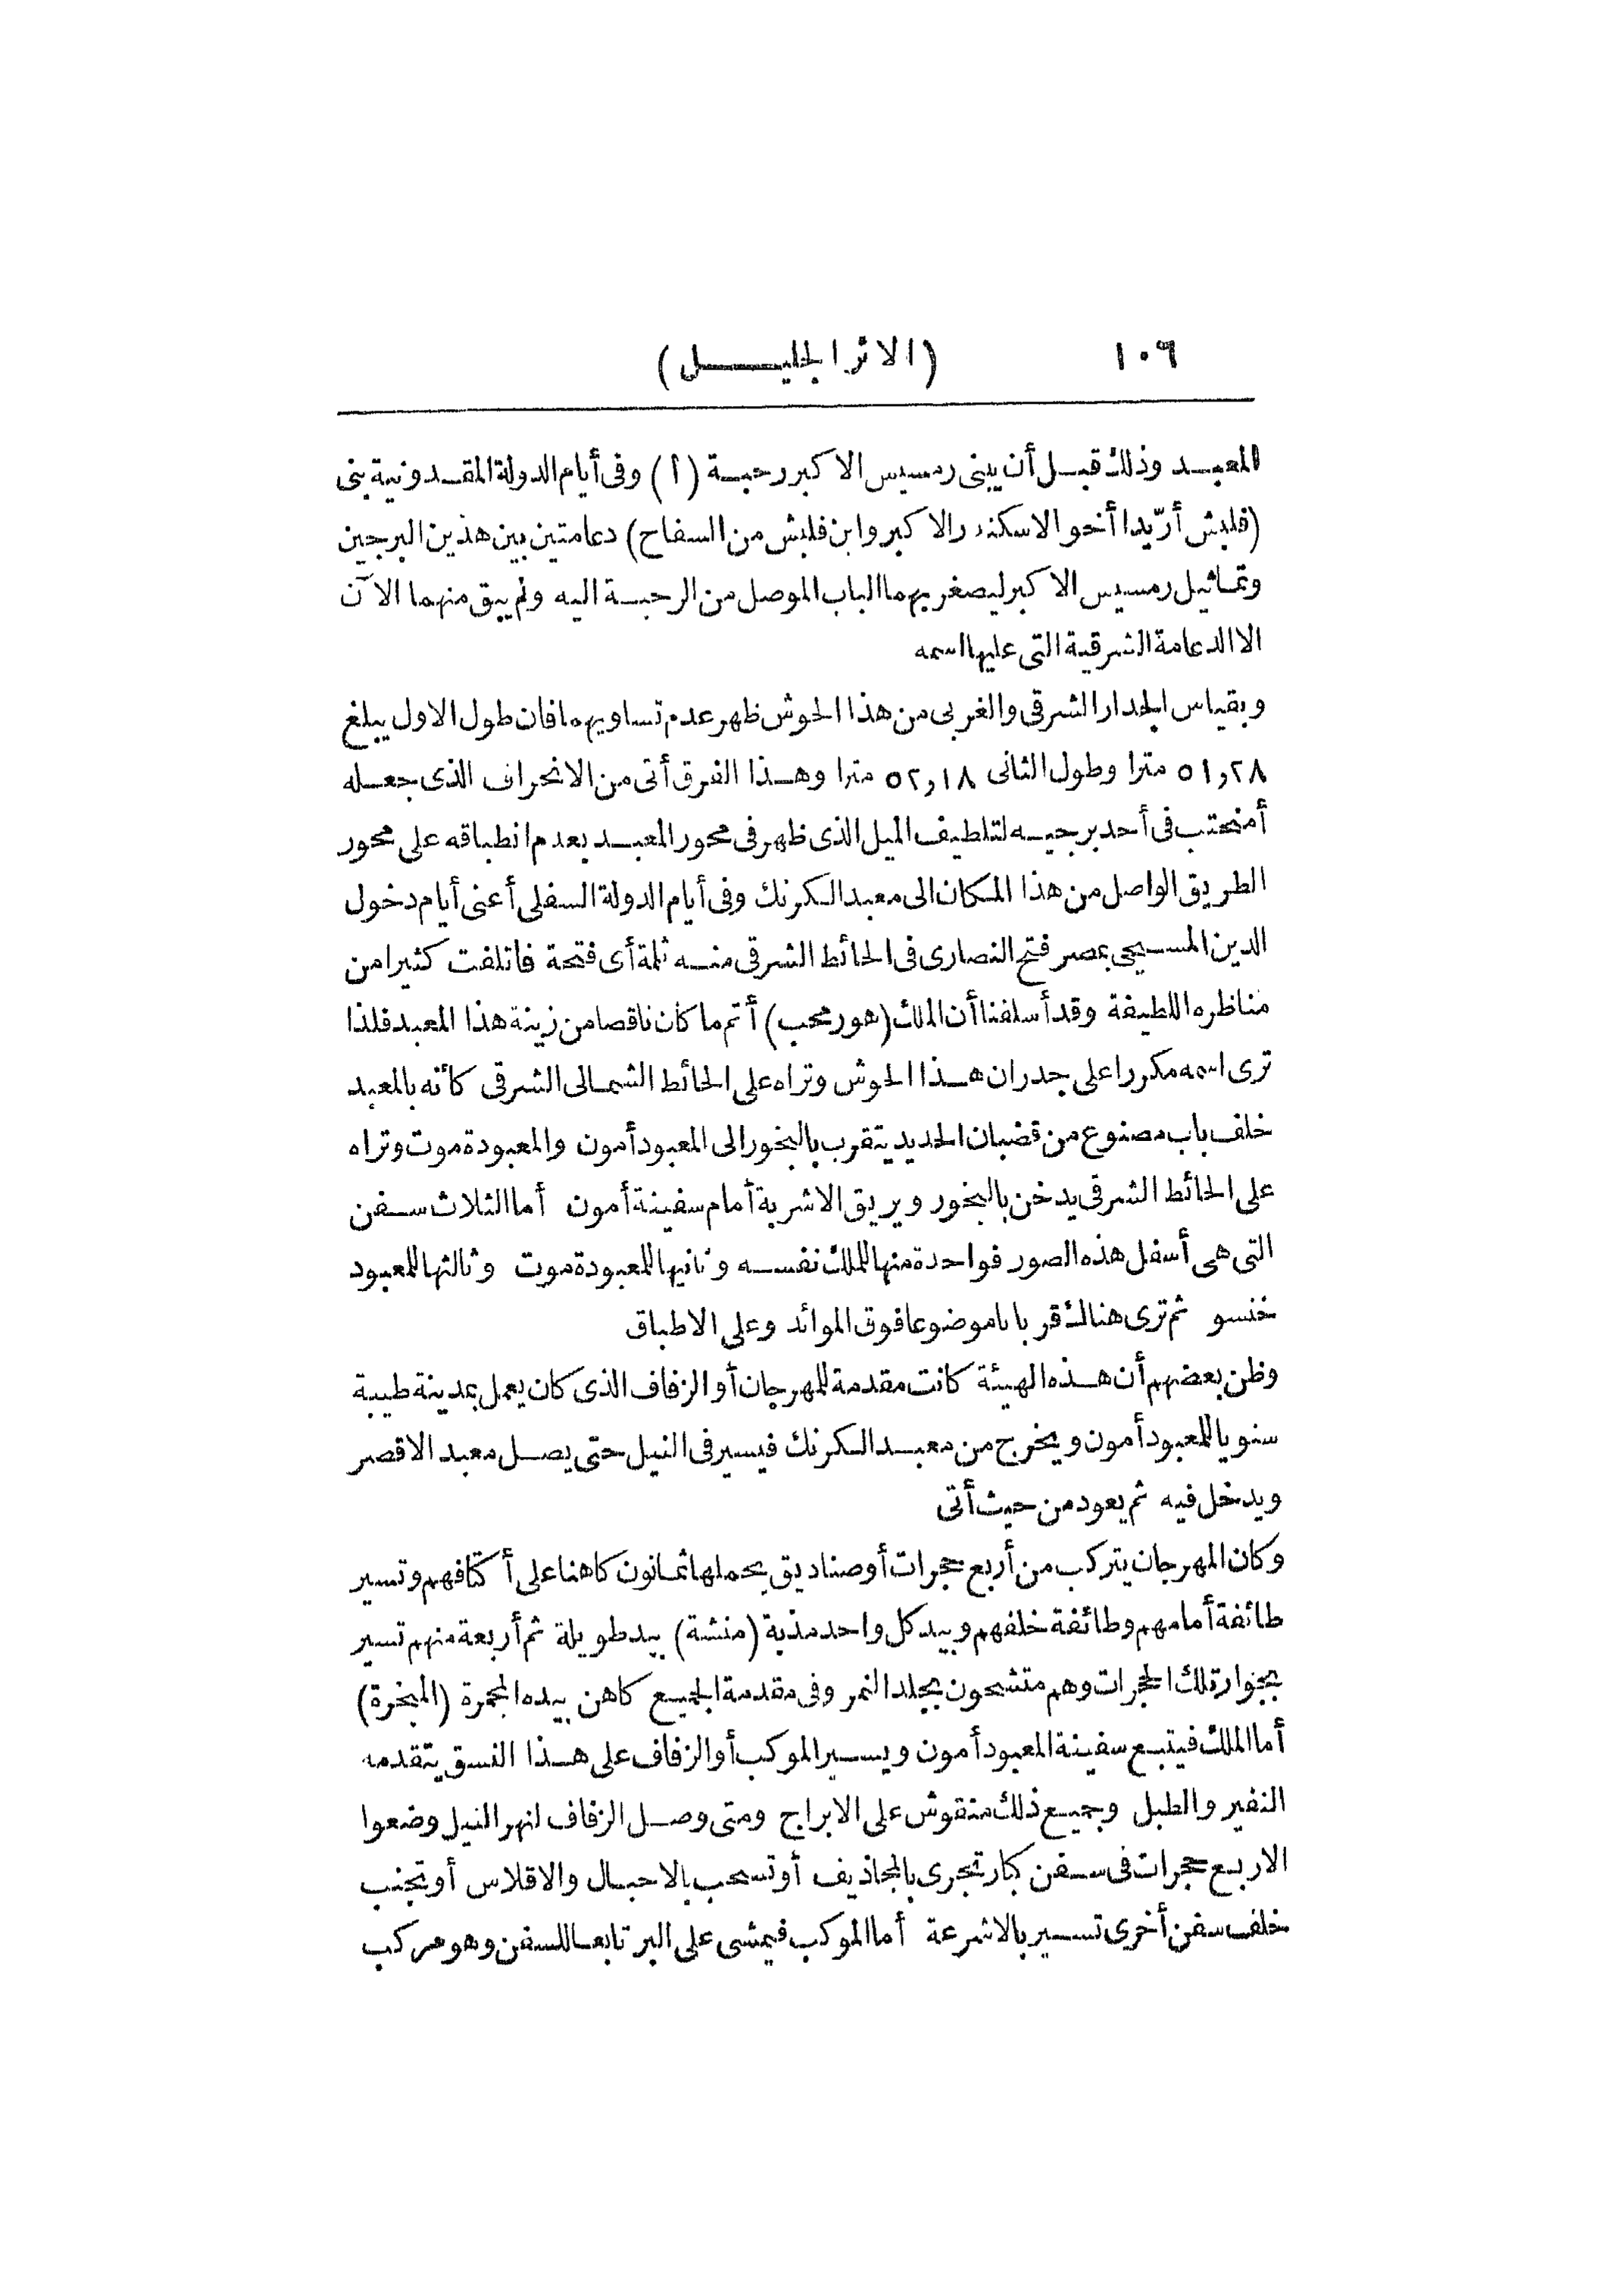 ١٠٦
(الاثر الجليل)
المعبد وذلك قبل أن يبنى رمسيس الاكبر رحبة (أ) وفى أيام الدولة المقدونية بنى
(فلبش أرّيدا أخو الاسكندر الاكبر وابن فلبش من السفاح) دعامتين بين هذين البرجين
وتماثيل رمسيس الاكبر ليصغر بهما الباب الموصل من الرحبة اليه ولم يبق منهما الآن
الا الدعامة الشرقية التى عليها اسمه
وبقياس الجدار الشرقى والغربى من هذا الحوش ظهر عدم تساويهما فان طول الاول يبلغ
٥١,٢٨ مترا وطول الثانى ٥٢,١٨ مترا وهذا الفرق أتى من الانحراف الذى جعله
أمنحتب فى أحد برجيه لتلطيف الميل الذى ظهر فى محور المعبد بعدم انطباقه على محور
الطريق الواصل من هذا المكان الى معبد الكرنك وفى أيام الدولة السفلى أعنى أيام دخول
الدين المسيحى بمصر فتح النصارى فى الحائط الشرقى منه ثلمة أى فتحة فاتلفت كثيرا من
مناظره اللطيفة وقد أسلفنا أن الملك (هور محب) أتم ما كان ناقصا من زينة هذا المعبد فلذا
ترى اسمه مكررا على جدران هذا الحوش وتراه على الحائط الشمالى الشرقى كأنه بالمعبد
خلف باب مصنوع من قضبان الحديد يتقرب بالبخور الى المعبود أمون والمعبودة موت وتراه
على الحائط الشرقى يدخن بالبخور ويريق الاشربة أمام سفينة أمون أما الثلاث سفن
التى هى أسفل هذه الصور فواحدة منها للملك نفسه وثانيها للمعبودة موت وثالثها للمعبود
خنسو ثم ترى هناك قربانا موضوعا فوق الموائد وعلى الاطباق
وظن بعضهم أن هذه الهيئة كانت مقدمة للمهرجان أو الزفاف الذى كان يعمل بمدينة طيبة
سنويا للمعبود أمون ويخرج من معبد الكرنك فيسير فى النيل حتى يصل معبد الاقصر
ويدخل فيه ثم يعود من حيث أتى
وكان المهرجان يتركب من أربع حجرات أو صناديق يحملها ثمانون كاهنا على أكتافهم وتسير
طائفة أمامهم وطائفة خلفهم وبيد كل واحد مذبة (منشة) بيد طويلة ثم أربعة منهم تسير
بجوار تلك الحجرات وهم متشحون بجلد النمر وفى مقدمة الجميع كاهن بيده المجمرة (المبخرة)
أما الملك فيتبع سفينة المعبود أمون ويسير الموكب أو الزفاف على هذا النسق يتقدمه
النفير والطبل وجميع ذلك منقوش على الابراج ومتى وصل الزفاف لنهر النيل وضعوا
الاربع حجرات فى سفن كبار تجرى بالمجاذيف أو تسحب بالاحبال والاقلاس أو تجنب
خلف سفن أخرى تسير بالاشرعة أما الموكب فيمشى على البر تابعا للسفن وهو مركب